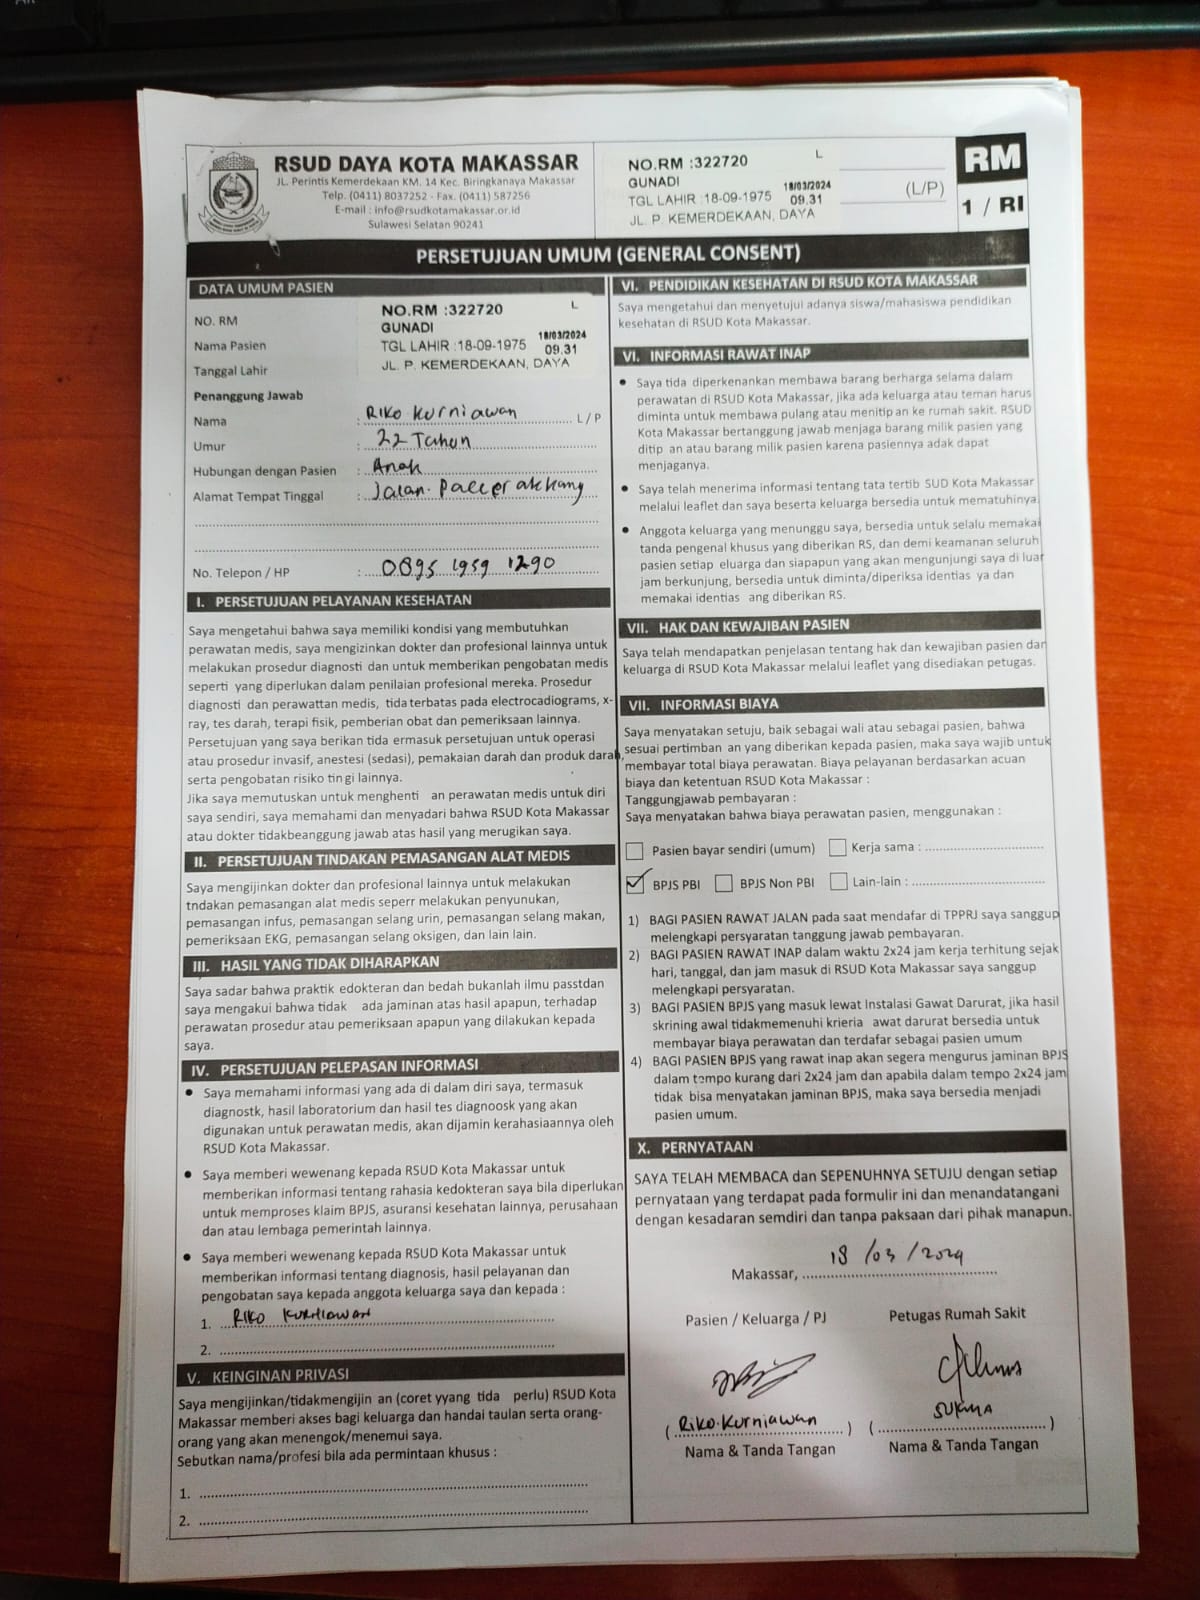 RSUD DAYA KOTA MAKASSAR
JL. Perintis Kemerdekaan KM. 14 Kec. Biringkanaya Makassar
Telp. (0411) 8037252 - Fax. (0411) 587256
E-mail : info@rsudkotamakassar.or.id
Sulawesi Selatan 90241
NO.RM :322720 L
GUNADI
TGL LAHIR :18-09-1975 18/03/2024 09.31
JL. P. KEMERDEKAAN, DAYA
(L/P)
RM
1 / RI
PERSETUJUAN UMUM (GENERAL CONSENT)
DATA UMUM PASIEN
NO. RM
Nama Pasien
Tanggal Lahir
NO.RM :322720 L
GUNADI
TGL LAHIR :18-09-1975 18/03/2024 09.31
JL. P. KEMERDEKAAN, DAYA
Penanggung Jawab
Nama : Riko Kurniawan L / P
Umur : 22 Tahun
Hubungan dengan Pasien : Anak
Alamat Tempat Tinggal : Jalan.
No. Telepon / HP : 0895 1959 1290
I. PERSETUJUAN PELAYANAN KESEHATAN
Saya mengetahui bahwa saya memiliki kondisi yang membutuhkan
perawatan medis, saya mengizinkan dokter dan profesional lainnya untuk
melakukan prosedur diagnosti dan untuk memberikan pengobatan medis
seperti yang diperlukan dalam penilaian profesional mereka. Prosedur
diagnosti dan perawattan medis, tida terbatas pada electrocadiograms, x-
ray, tes darah, terapi fisik, pemberian obat dan pemeriksaan lainnya.
Persetujuan yang saya berikan tida ermasuk persetujuan untuk operasi
atau prosedur invasif, anestesi (sedasi), pemakaian darah dan produk darah,
serta pengobatan risiko tin gi lainnya.
Jika saya memutuskan untuk menghenti an perawatan medis untuk diri
saya sendiri, saya memahami dan menyadari bahwa RSUD Kota Makassar
atau dokter tidakbeanggung jawab atas hasil yang merugikan saya.
II. PERSETUJUAN TINDAKAN PEMASANGAN ALAT MEDIS
Saya mengijinkan dokter dan profesional lainnya untuk melakukan
tndakan pemasangan alat medis seperr melakukan penyunukan,
pemasangan infus, pemasangan selang urin, pemasangan selang makan,
pemeriksaan EKG, pemasangan selang oksigen, dan lain lain.
III. HASIL YANG TIDAK DIHARAPKAN
Saya sadar bahwa praktik edokteran dan bedah bukanlah ilmu passtdan
saya mengakui bahwa tidak ada jaminan atas hasil apapun, terhadap
perawatan prosedur atau pemeriksaan apapun yang dilakukan kepada
saya.
IV. PERSETUJUAN PELEPASAN INFORMASI
• Saya memahami informasi yang ada di dalam diri saya, termasuk
diagnostk, hasil laboratorium dan hasil tes diagnoosk yang akan
digunakan untuk perawatan medis, akan dijamin kerahasiaannya oleh
RSUD Kota Makassar.
• Saya memberi wewenang kepada RSUD Kota Makassar untuk
memberikan informasi tentang rahasia kedokteran saya bila diperlukan
untuk memproses klaim BPJS, asuransi kesehatan lainnya, perusahaan
dan atau lembaga pemerintah lainnya.
• Saya memberi wewenang kepada RSUD Kota Makassar untuk
memberikan informasi tentang diagnosis, hasil pelayanan dan
pengobatan saya kepada anggota keluarga saya dan kepada :
1. Riko Kurniawan
2.
V. KEINGINAN PRIVASI
Saya mengijinkan/tidakmengijin an (coret yyang tida perlu) RSUD Kota
Makassar memberi akses bagi keluarga dan handai taulan serta orang-
orang yang akan menengok/menemui saya.
Sebutkan nama/profesi bila ada permintaan khusus :
1.
2.
VI. PENDIDIKAN KESEHATAN DI RSUD KOTA MAKASSAR
Saya mengetahui dan menyetujui adanya siswa/mahasiswa pendidikan
kesehatan di RSUD Kota Makassar.
VI. INFORMASI RAWAT INAP
• Saya tida diperkenankan membawa barang berharga selama dalam
perawatan di RSUD Kota Makassar, jika ada keluarga atau teman harus
diminta untuk membawa pulang atau menitip an ke rumah sakit. RSUD
Kota Makassar bertanggung jawab menjaga barang milik pasien yang
ditip an atau barang milik pasien karena pasiennya adak dapat
menjaganya.
• Saya telah menerima informasi tentang tata tertib SUD Kota Makassar
melalui leaflet dan saya beserta keluarga bersedia untuk mematuhinya.
• Anggota keluarga yang menunggu saya, bersedia untuk selalu memakai
tanda pengenal khusus yang diberikan RS, dan demi keamanan seluruh
pasien setiap eluarga dan siapapun yang akan mengunjungi saya di luar
jam berkunjung, bersedia untuk diminta/diperiksa identias ya dan
memakai identias ang diberikan RS.
VII. HAK DAN KEWAJIBAN PASIEN
Saya telah mendapatkan penjelasan tentang hak dan kewajiban pasien dan
keluarga di RSUD Kota Makassar melalui leaflet yang disediakan petugas.
VII. INFORMASI BIAYA
Saya menyatakan setuju, baik sebagai wali atau sebagai pasien, bahwa
sesuai pertimban an yang diberikan kepada pasien, maka saya wajib untuk
membayar total biaya perawatan. Biaya pelayanan berdasarkan acuan
biaya dan ketentuan RSUD Kota Makassar :
Tanggungjawab pembayaran :
Saya menyatakan bahwa biaya perawatan pasien, menggunakan :
Pasien bayar sendiri (umum) Kerja sama :
✓ BPJS PBI BPJS Non PBI Lain-lain :
1) BAGI PASIEN RAWAT JALAN pada saat mendafar di TPPRJ saya sanggup
melengkapi persyaratan tanggung jawab pembayaran.
2) BAGI PASIEN RAWAT INAP dalam waktu 2x24 jam kerja terhitung sejak
hari, tanggal, dan jam masuk di RSUD Kota Makassar saya sanggup
melengkapi persyaratan.
3) BAGI PASIEN BPJS yang masuk lewat Instalasi Gawat Darurat, jika hasil
skrining awal tidakmemenuhi krieria awat darurat bersedia untuk
membayar biaya perawatan dan terdafar sebagai pasien umum
4) BAGI PASIEN BPJS yang rawat inap akan segera mengurus jaminan BPJS
dalam tempo kurang dari 2x24 jam dan apabila dalam tempo 2x24 jam
tidak bisa menyatakan jaminan BPJS, maka saya bersedia menjadi
pasien umum.
X. PERNYATAAN
SAYA TELAH MEMBACA dan SEPENUHNYA SETUJU dengan setiap
pernyataan yang terdapat pada formulir ini dan menandatangani
dengan kesadaran semdiri dan tanpa paksaan dari pihak manapun.
Makassar, 18 / 03 / 2024
Pasien / Keluarga / PJ Petugas Rumah Sakit
(Riko.Kurniawan) (SUKMA)
Nama & Tanda Tangan Nama & Tanda Tangan